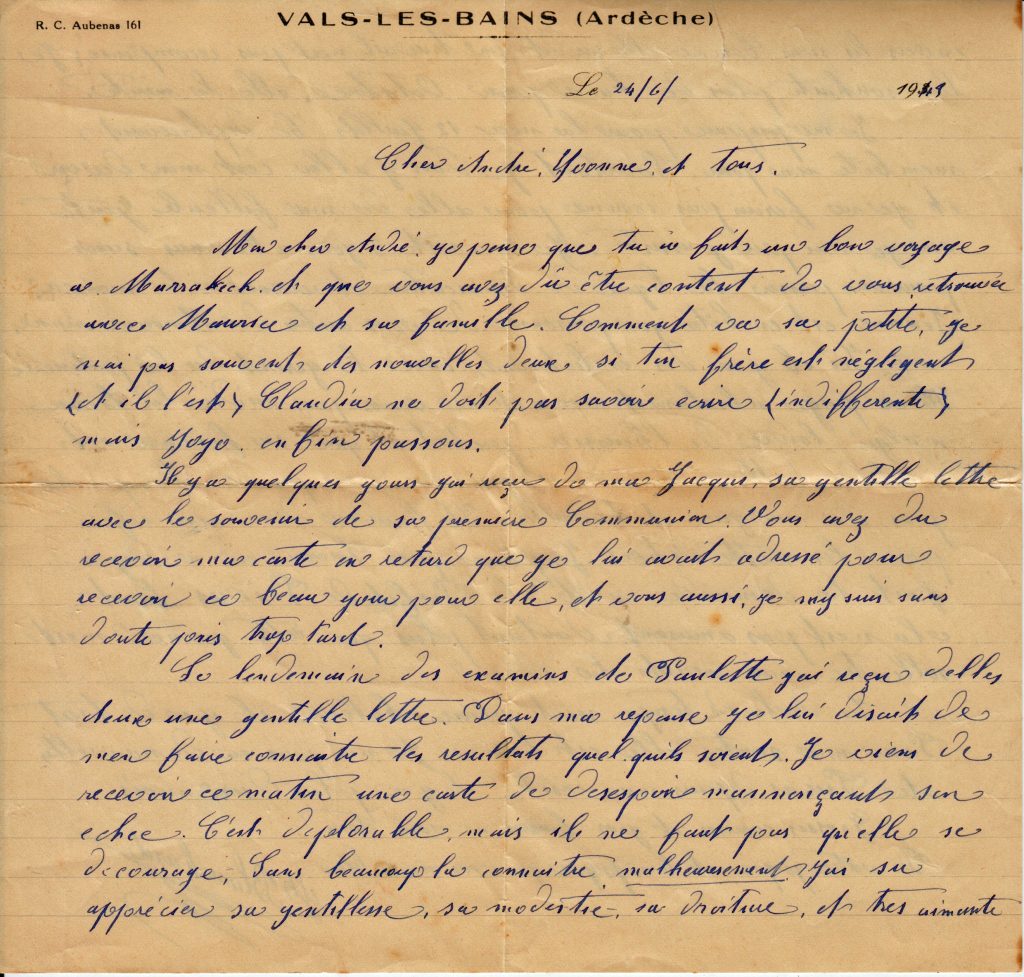 R. C. Aubenas 161
VALS-LES-BAINS (Ardèche)
Le 24/6/ 1943
Cher André, Yvonne, et tous.
Mon cher André, je pense que tu a fait un bon voyage
a Marrakech et que vous avez dû être content de vous retrouver
avec Maurice et sa famille. Comment va sa petite, je
n'ai pas souvent des nouvelles deux si ton frère est négligent
(et il l'est) Claudia ne doit pas savoir ecrire (indifferente)
mais Yoyo. enfin passons.
Il y a quelques jours j'ai reçu de ma Jacqui, sa gentille lettre
avec le souvenir de sa première Communion. Vous avez du
recevoir ma carte en retard que je lui avait adressé pour
recevoir ce beau jour pour elle, et vous aussi, je my suis sans
doute pris trop tard.
Le lendemain des examins de Paulette j'ai reçu delles
deux une gentille lettre. Dans ma reponse je lui disait de
men faire connaitre les resultats quel quils soient. Je viens de
recevoir ce matin une carte de desespoir mannonçant son
echec. C'est deplorable, mais il ne faut pas qu'elle se
decourage, Sans beaucoup la connaitre malheureusement j'ai su
apprécier sa gentillesse, sa modestie, sa droiture, et tres aimante